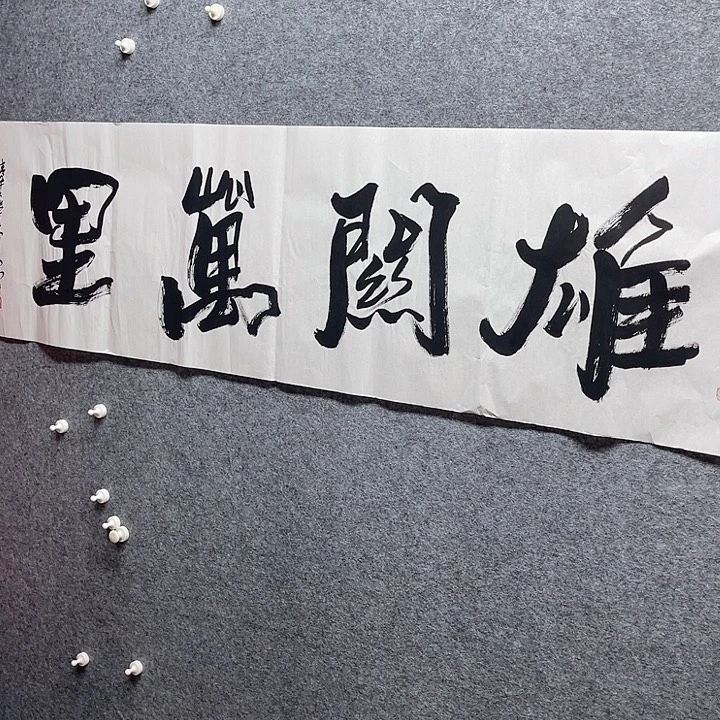 雄關萬里